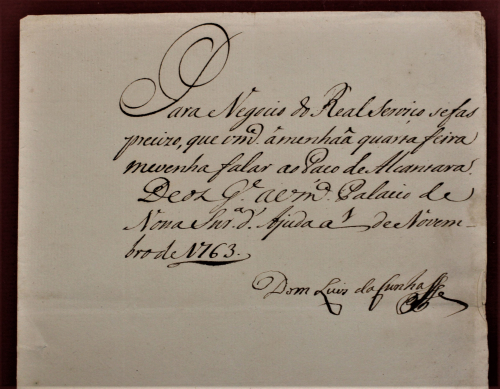 Para Negocio do Real Serviço se fas
precizo, que vm.ᵈ âmenhaã quarta feira
mevenha falar ao Paço de Alcantara.
Deos G.ᵉ a vm.ᵈ Palacio de
Nossa Snr.ª d'Ajuda a 1 de Novem-
bro de 1763.
Dom Luis da Cunha